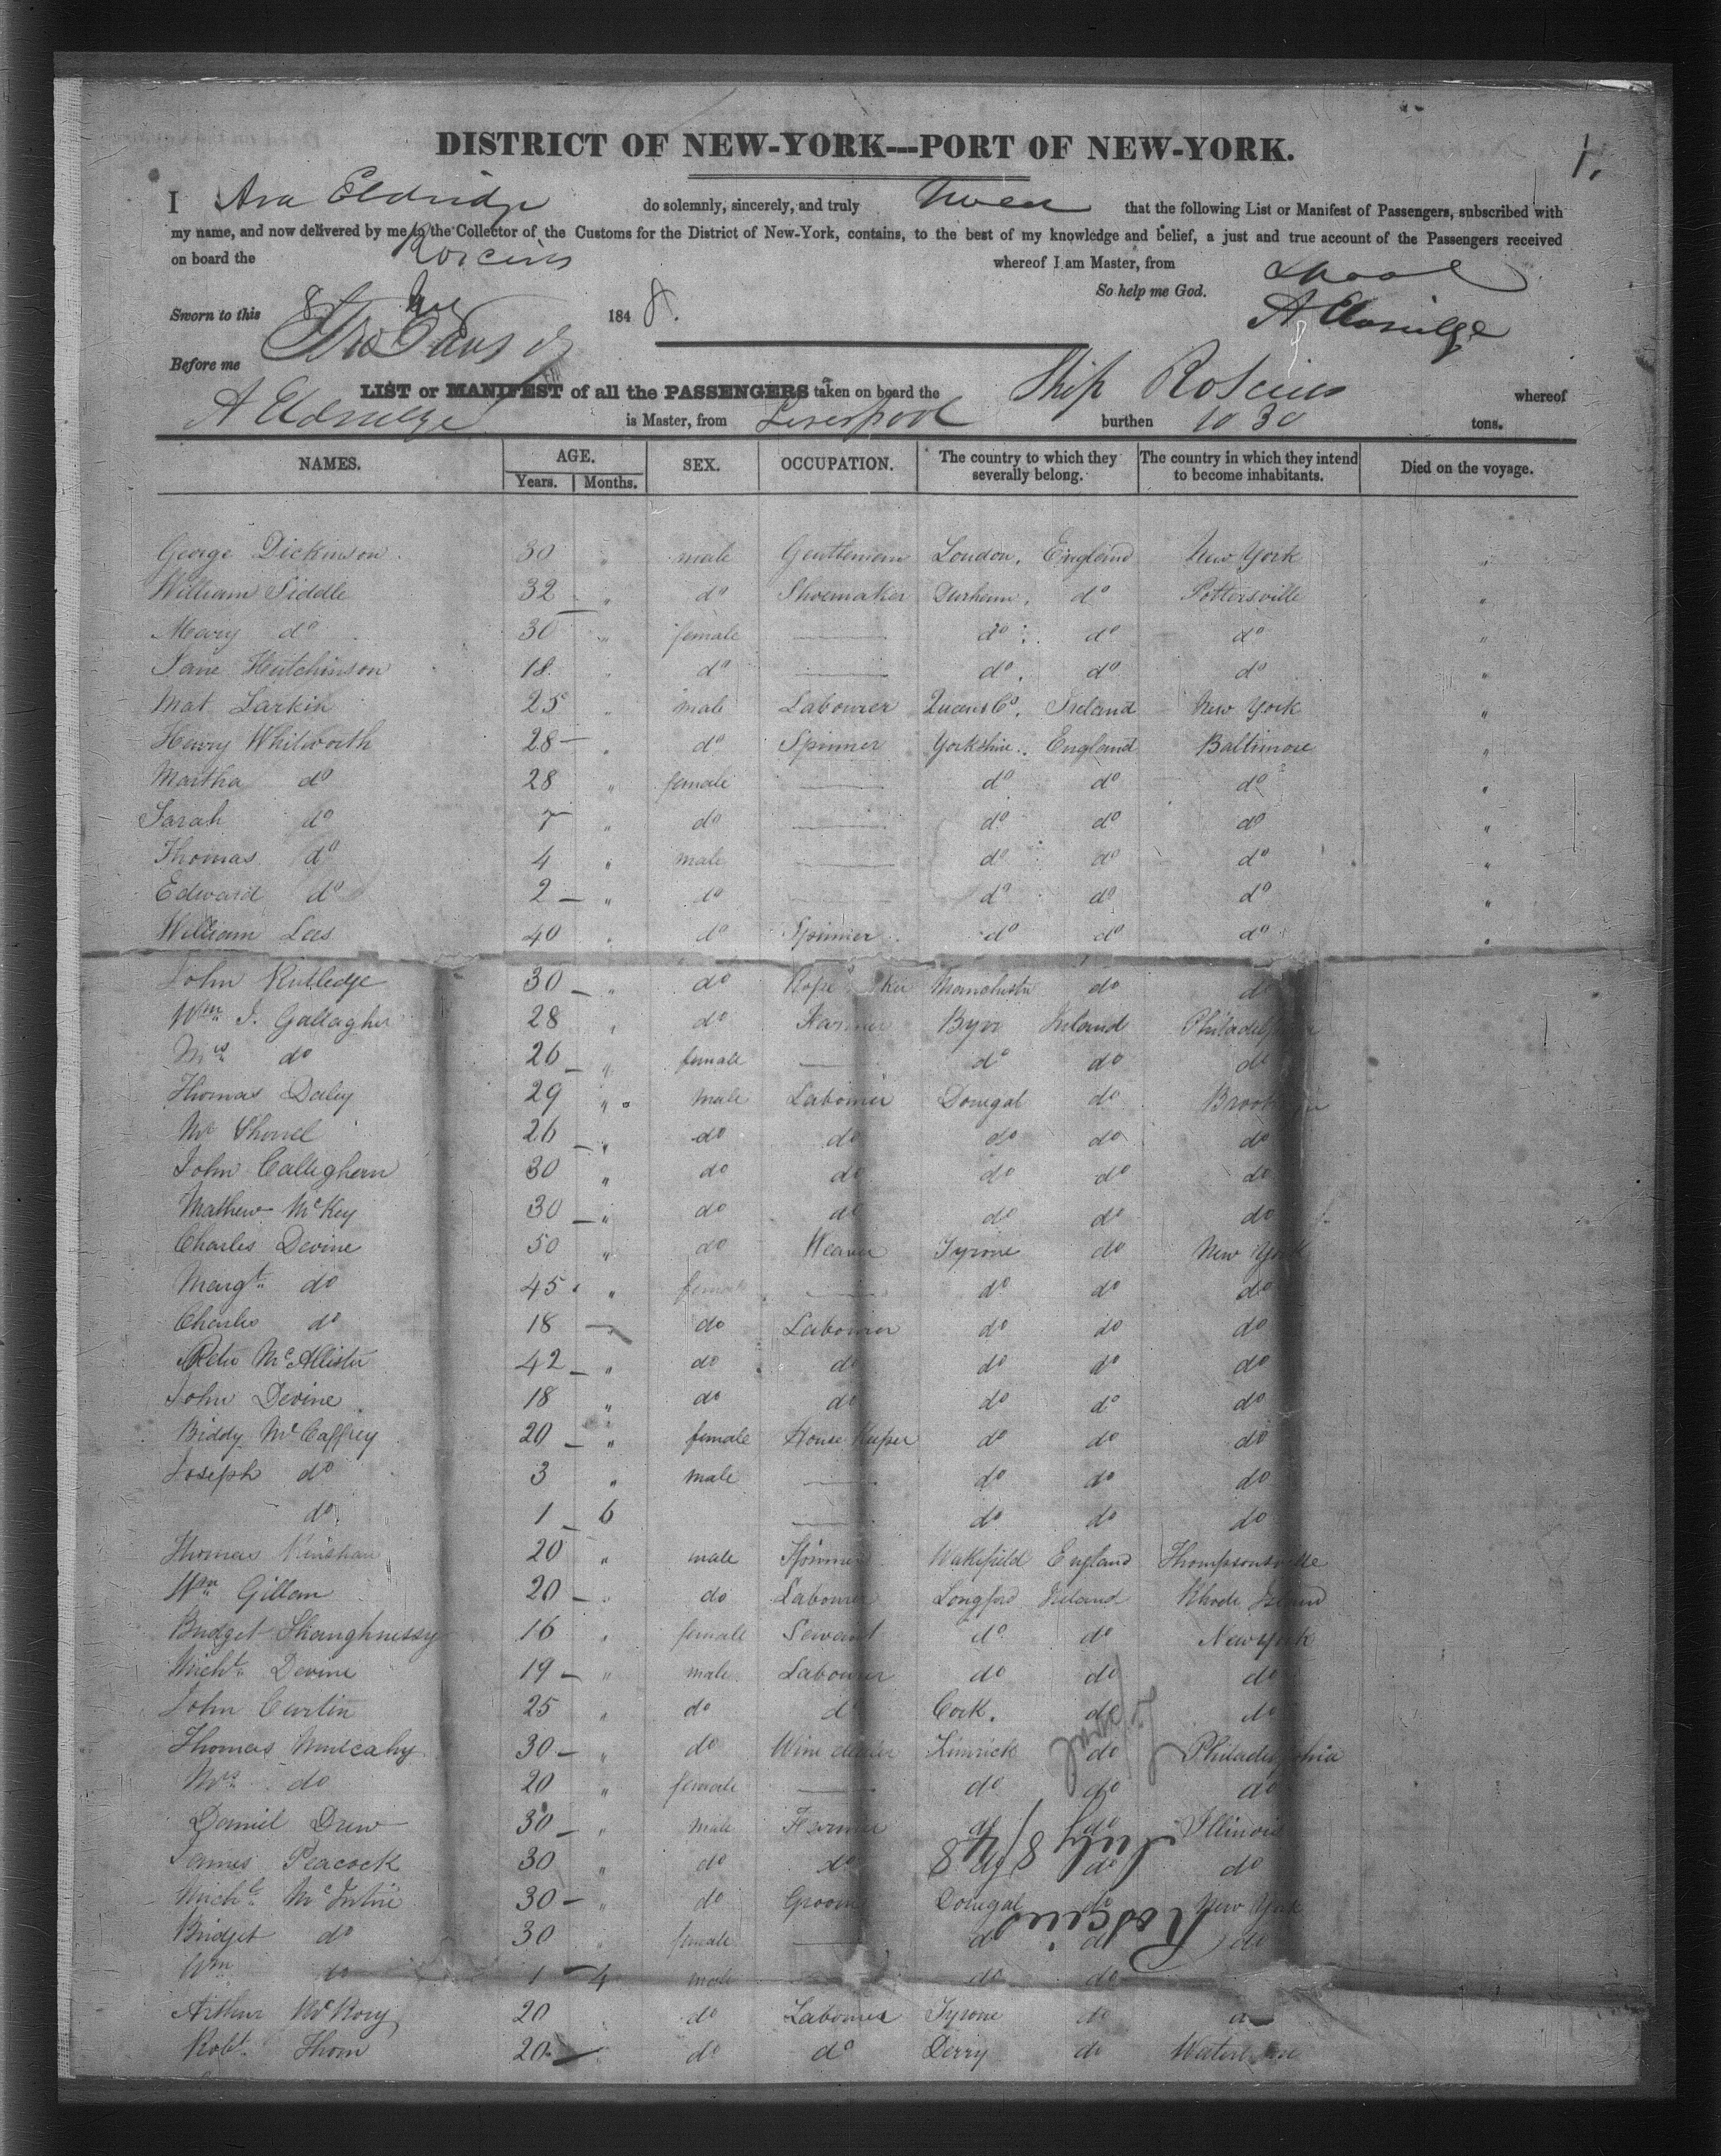 1.
DISTRICT OF NEW-YORK---PORT OF NEW-YORK.
I Asa Eldridge do solemnly, sincerely, and truly swear that the following List or Manifest of Passengers, subscribed with
my name, and now delivered by me to the Collector of the Customs for the District of New-York, contains, to the best of my knowledge and belief, a just and true account of the Passengers received
on board the Roscius whereof I am Master, from Lpool
So help me God.
Sworn to this 8 July 1848.
A Eldridge
Before me
LIST or MANIFEST of all the PASSENGERS taken on board the Ship Roscius whereof
A Eldridge is Master, from Liverpool burthen 1030 tons.
NAMES. AGE. Years. Months. SEX. OCCUPATION. The country to which they severally belong. The country in which they intend to become inhabitants. Died on the voyage.
George Dickinson 30 " male Gentleman London, England New York "
William Siddle 32 " do Shoemaker Durham, do Pottersville "
Mary do 30 " female — do do do "
Jane Hutchinson 18 " do — do do do "
Mat Larkin 25 " male Labourer Queens Co, Ireland New York "
Henry Whitworth 28 " do Spinner Yorkshire England Baltimore "
Martha do 28 " female — do do do "
Sarah do 7 " do — do do do "
Thomas do 4 " male — do do do "
Edward do 2 " do do do do "
William Lees 40 " do Spinner do do do "
John Rutledge 30 " do Rope Manchester do do
Wm J. Gallagher 28 " do Farmer Byrr Ireland Philadelphia
Mrs do 26 " female — do do do
Thomas Daley 29 " male Labourer Donegal do Brooklyn
Mc 26 " do do do do do
John Calleghern 30 " do do do do do
Mathew McKey 30 " do do do do do
Charles Devine 50 " do Weaver Tyrone do New York
Margt do 45 " female — do do do
Charles do 18 " do Labourer do do do
Peter McAllister 42 " do do do do do
John Devine 18 " do do do do do
Biddy McCaffrey 20 " female House Keeper do do do
Joseph do 3 " male — do do do
do 1 6 — do do do
Thomas 20 " male Spinner Wakefield England Thompsonsville
Wm Gillan 20 " do Labourer Longford Ireland Rhode Island
Bridget Shaughnessy 16 " female Servant do do New York
Michl Devine 19 " male Labourer do do do
John Curtin 25 " do do Cork. do do
Thomas Mulcahy 30 " do Wine dealer Limrick do Philadelphia
Mrs do 20 " female — do do do
Daniel Drew 30 " male Farmer do do Illinois
James Peacock 30 " do do do do do
Michl McIntire 30 " do Groom Donegal do New York
Bridget do 30 " female — do do do
Wm do 1 4 male do do
Arthur McRory 20 do Labourer Tyrone do
Robt Thom 20 " do do Derry do
Roscius
July 8/48